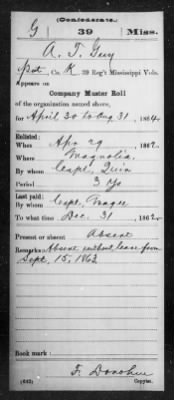 (Confederate.)
G 39 Miss.
A. T. Guy
Pvt, Co. K, 39 Reg't Mississippi Vols.
Appears on
Company Muster Roll
of the organization named above,
for April 30 to Aug 31, 1864.
Enlisted:
When Apr 29, 1862.
Where Magnolia.
By whom Capt. Quin
Period 3 Yrs
Last paid:
By whom Capt. Magee
To what time Dec. 31, 1862.
Present or absent Absent
Remarks: Absent without leave from
Sept. 15, 1863.
Book mark:
(642) Copyist.